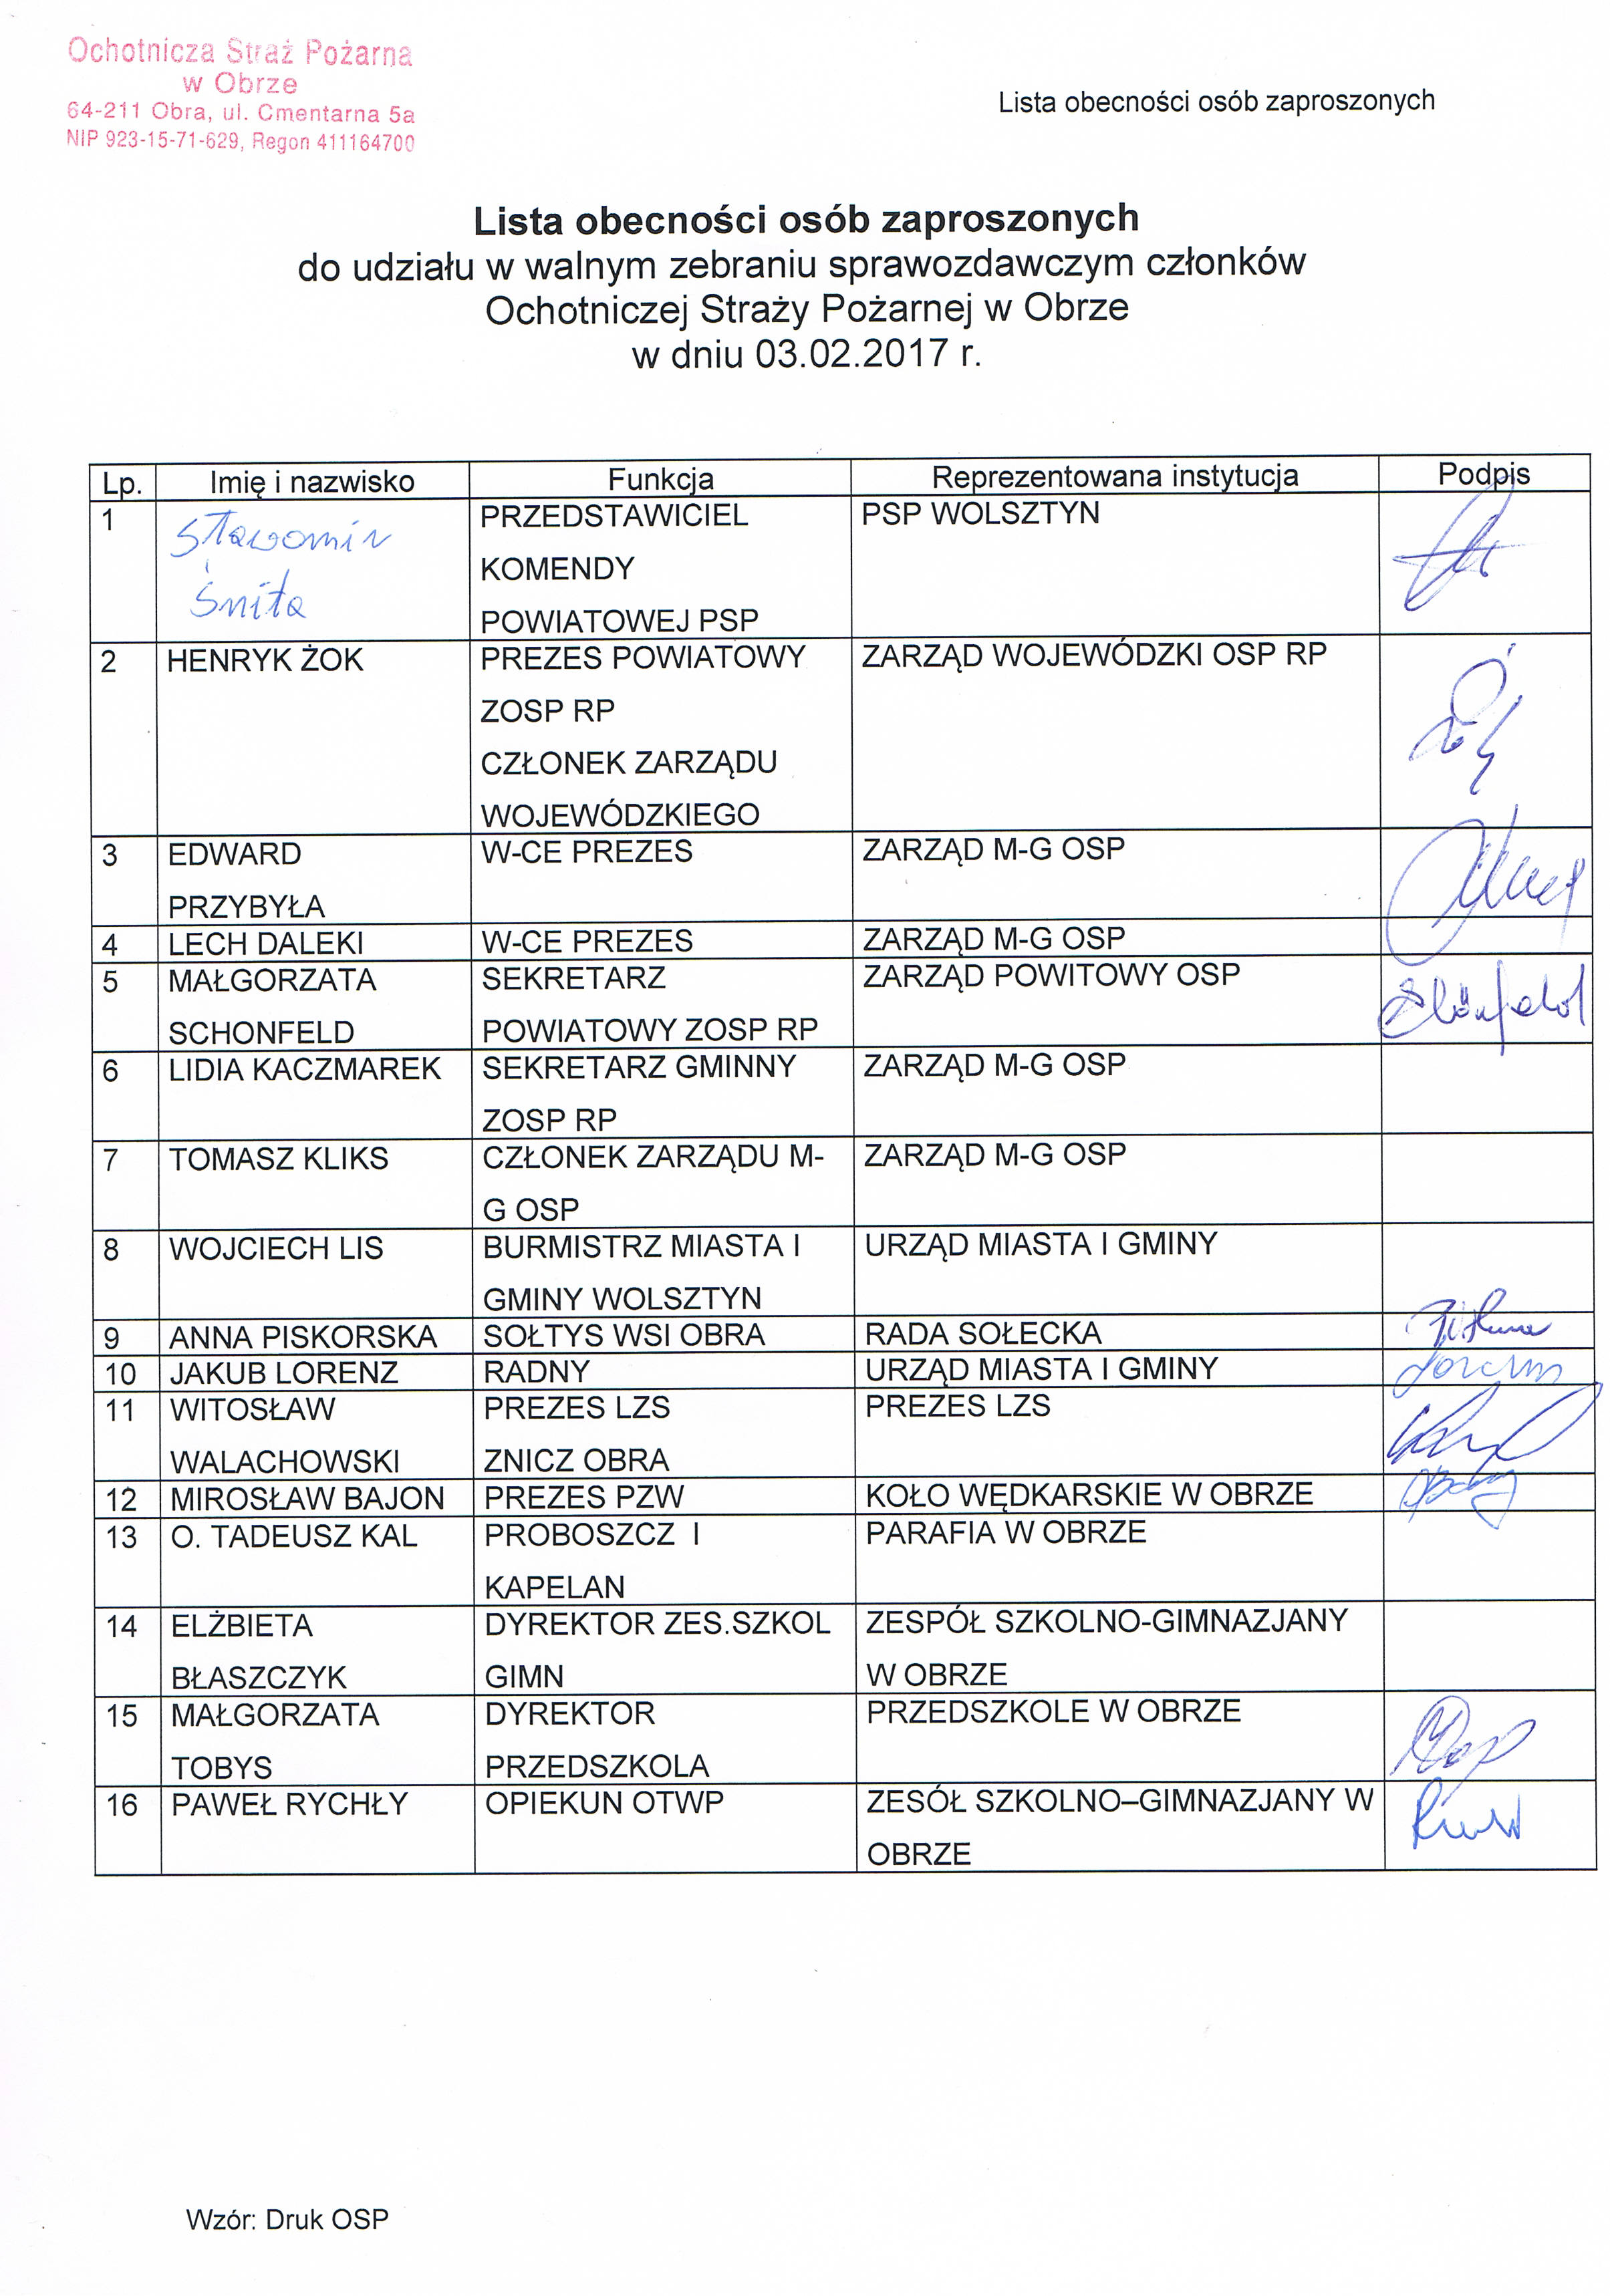 Ochotnicza Straż Pożarna
w Obrze
64-211 Obra, ul. Cmentarna 5a
NIP 923-15-71-629, Regon 411164700
Lista obecności osób zaproszonych
Lista obecności osób zaproszonych
do udziału w walnym zebraniu sprawozdawczym członków
Ochotniczej Straży Pożarnej w Obrze
w dniu 03.02.2017 r.
Lp. Imię i nazwisko Funkcja Reprezentowana instytucja Podpis
1 Sławomir PRZEDSTAWICIEL PSP WOLSZTYN
KOMENDY
Śnita POWIATOWEJ PSP
2 HENRYK ŻOK PREZES POWIATOWY ZARZĄD WOJEWÓDZKI OSP RP
ZOSP RP
CZŁONEK ZARZĄDU
WOJEWÓDZKIEGO
3 EDWARD W-CE PREZES ZARZĄD M-G OSP
PRZYBYŁA
4 LECH DALEKI W-CE PREZES ZARZĄD M-G OSP
5 MAŁGORZATA SEKRETARZ ZARZĄD POWITOWY OSP
SCHONFELD POWIATOWY ZOSP RP
6 LIDIA KACZMAREK SEKRETARZ GMINNY ZARZĄD M-G OSP
ZOSP RP
7 TOMASZ KLIKS CZŁONEK ZARZĄDU M- ZARZĄD M-G OSP
G OSP
8 WOJCIECH LIS BURMISTRZ MIASTA I URZĄD MIASTA I GMINY
GMINY WOLSZTYN
9 ANNA PISKORSKA SOŁTYS WSI OBRA RADA SOŁECKA
10 JAKUB LORENZ RADNY URZĄD MIASTA I GMINY
11 WITOSŁAW PREZES LZS PREZES LZS
WALACHOWSKI ZNICZ OBRA
12 MIROSŁAW BAJON PREZES PZW KOŁO WĘDKARSKIE W OBRZE
13 O. TADEUSZ KAL PROBOSZCZ I PARAFIA W OBRZE
KAPELAN
14 ELŻBIETA DYREKTOR ZES.SZKOL ZESPÓŁ SZKOLNO-GIMNAZJANY
BŁASZCZYK GIMN W OBRZE
15 MAŁGORZATA DYREKTOR PRZEDSZKOLE W OBRZE
TOBYS PRZEDSZKOLA
16 PAWEŁ RYCHŁY OPIEKUN OTWP ZESÓŁ SZKOLNO–GIMNAZJANY W
OBRZE
Wzór: Druk OSP